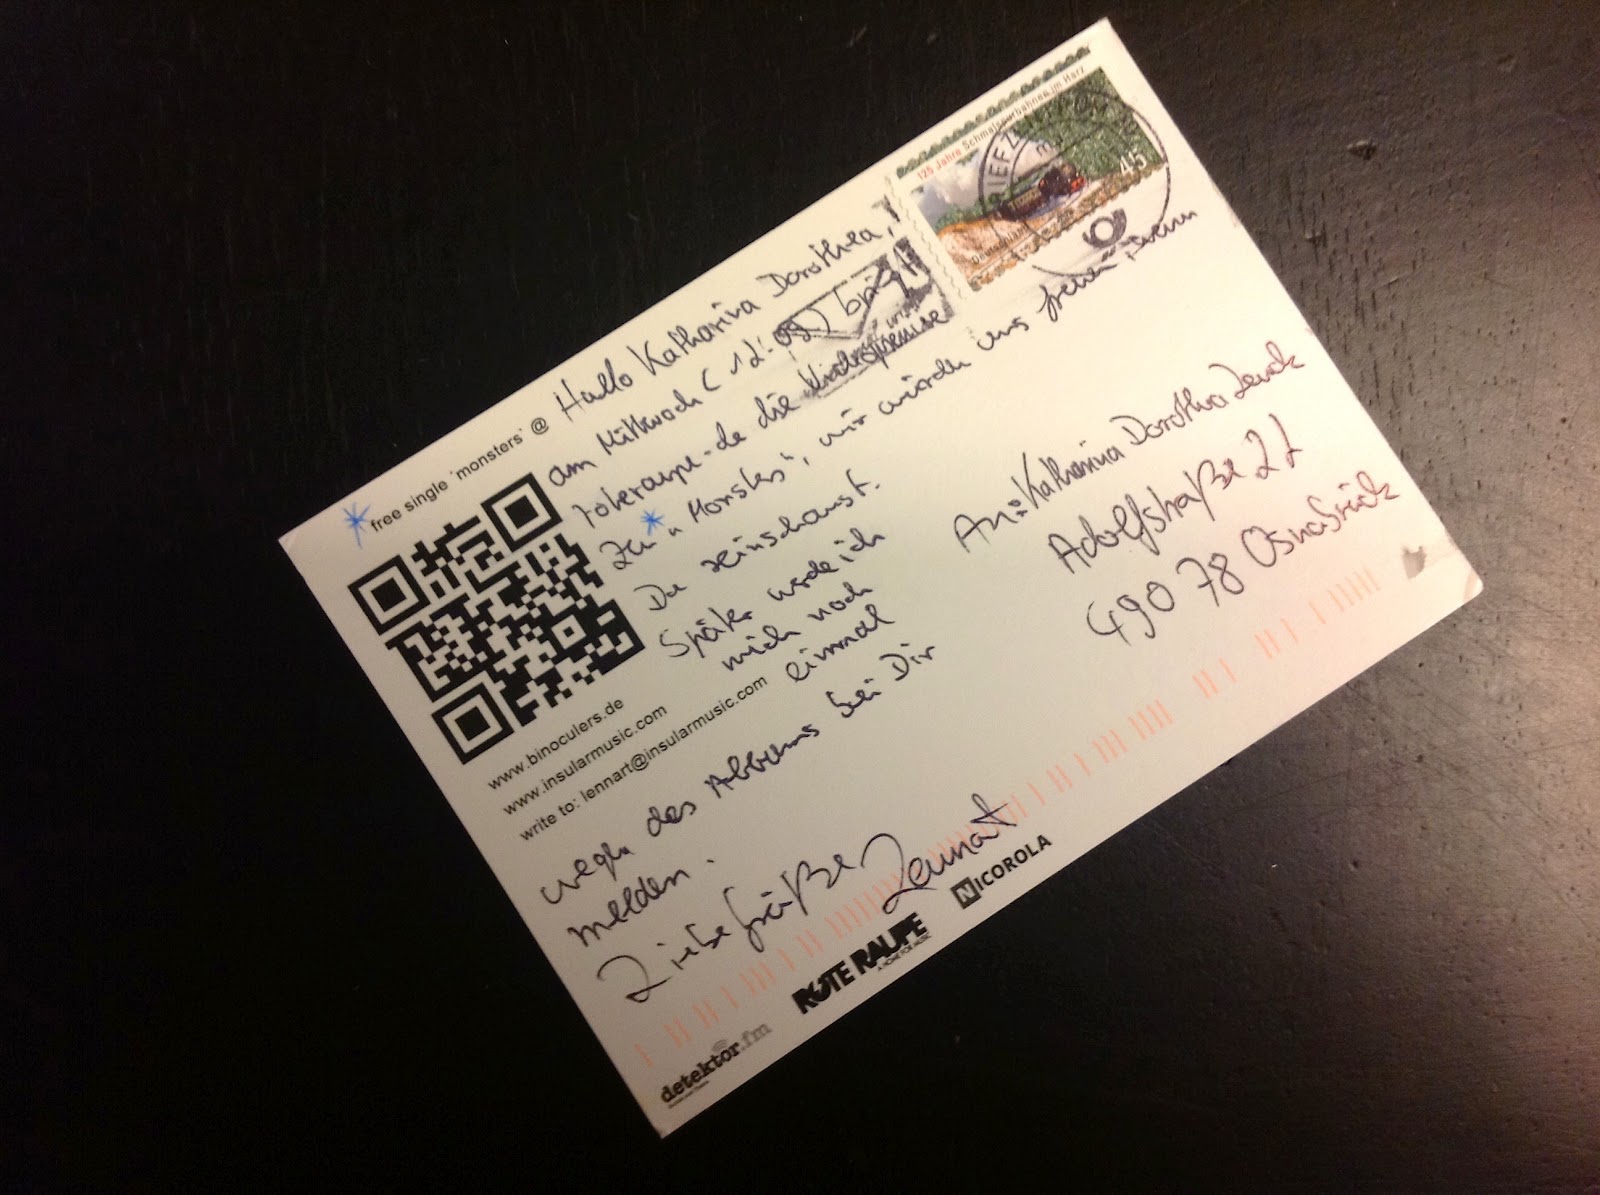 125 Jahre Schmalspurbahnen im Harz
45
Deutschland
*free single 'monsters' @
Hallo Katharina Dorothea,
am Mittwoch (12.09.) bringt
die Videopremiere
zu "Monsters", wir würden uns freuen, wenn
Du reinschaust.
Später werde ich
mich noch
einmal
wegen des Albums bei Dir
melden.
Liebe Grüße
Lennart
www.binoculers.de
www.insularmusic.com
write to: lennart@insularmusic.com
An: Katharina Dorothea
Adolfstraße 22
49078 Osnabrück
detektor.fm
ROTE RAUPE
A HOME FOR MUSIC
NICOROLA